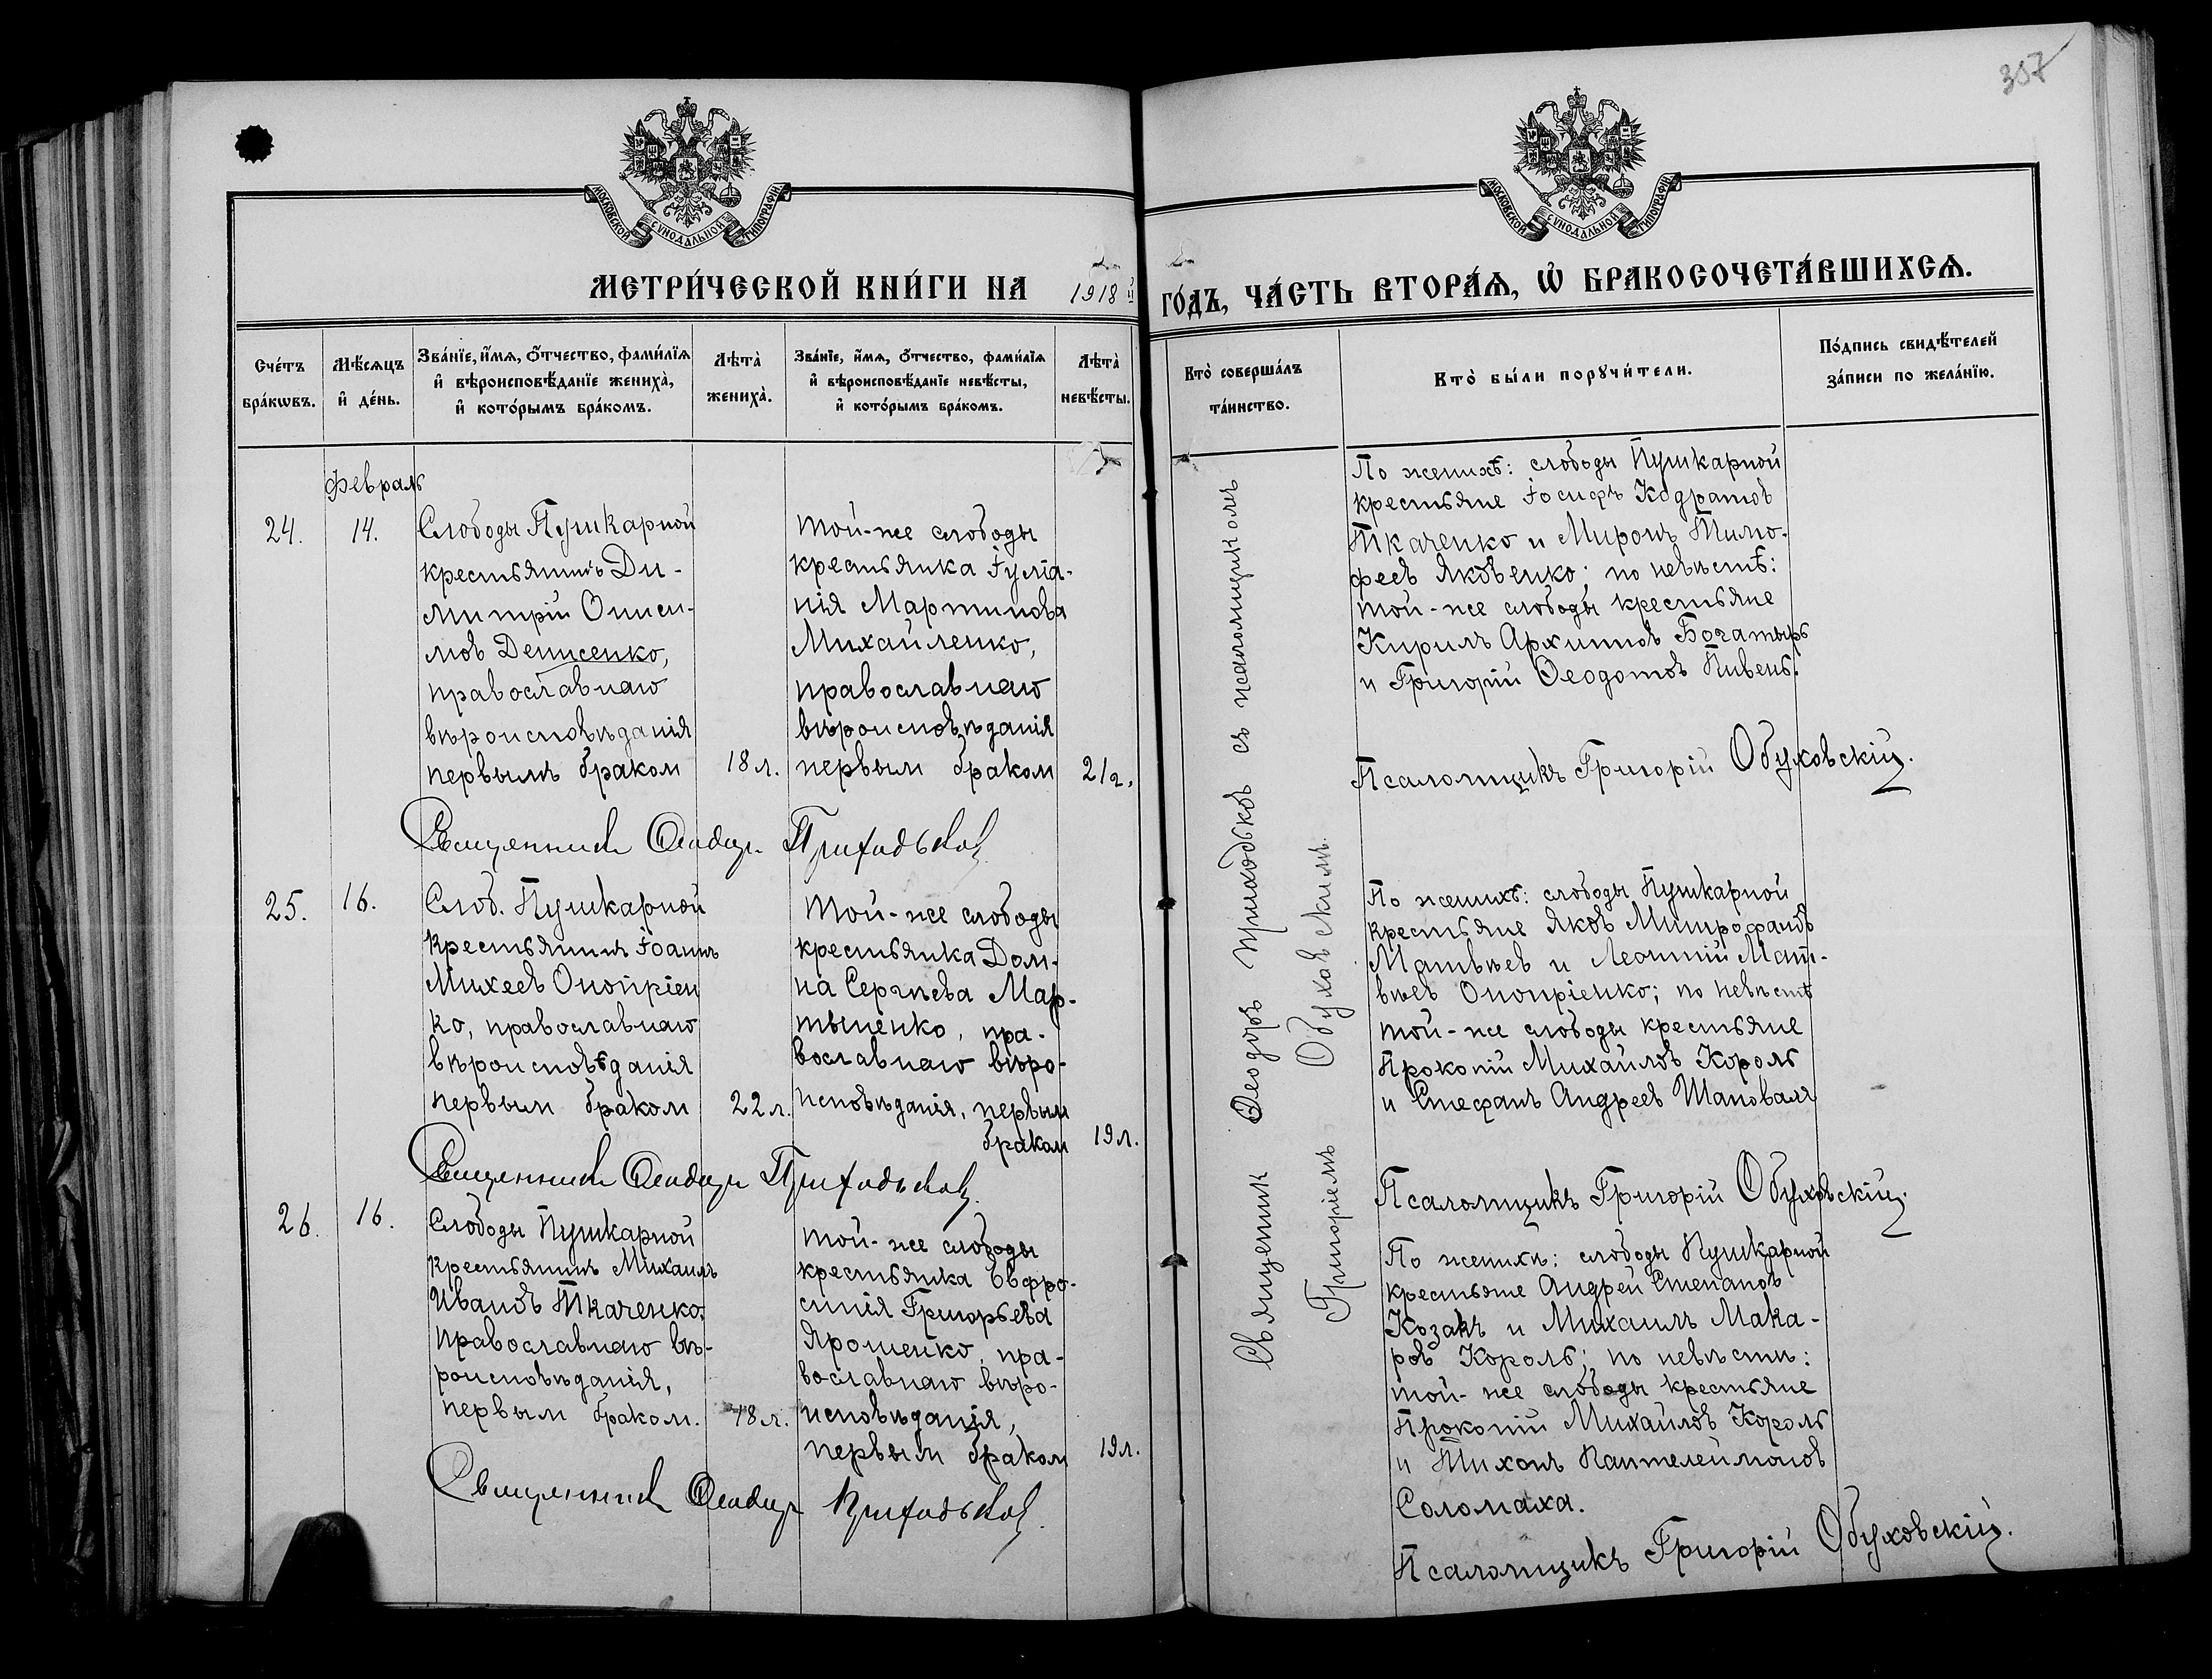 357
МОСКОВСКОЙ СУНОДАЛЬНОЙ ТИПОГРАФІИ
МОСКОВСКОЙ СУНОДАЛЬНОЙ ТИПОГРАФІИ
МЕТРИ́ЧЕСКОЙ КНИ́ГИ НА 1918 й
ГО́ДЪ, ЧА́СТЬ ВТОРА́Ѧ, Ѡ҆ БРАКОСОЧЕТА́ВШИХСѦ.
Сче́тъ
бра́кѡвъ.
Мѣ́сѧцъ
и҆ де́нь.
Зва́нїе, и҆́мѧ, ѻ҆́тчество, фами́лїѧ
и҆ вѣроисповѣ́данїе жениха̀,
и҆ кото́рымъ бра́комъ.
Лѣта̀
жениха̀.
Зва́нїе, и҆́мѧ, ѻ҆́тчество, фами́лїѧ
и҆ вѣроисповѣ́данїе невѣ́сты,
и҆ кото́рымъ бра́комъ.
Лѣта̀
невѣ́сты.
Кто̀ соверша́лъ
та́инство.
Кто̀ бы́ли порꙋчи́тели.
По́дпись свидѣ́телей
за́писи по жела́нїю.
Февраль
24.
14.
Слободы Пушкарной
крестьянинъ Ди-
митрій Ониси-
мовъ Денисенко,
православнаго
вѣроисповѣданія
первымъ браком
18 л.
Той-же слободы
крестьянка Іуліа-
нія Мартинова
Михайленко,
православнаго
вѣроисповѣданія
первым браком
21 г.
Священникъ Ѳеодоръ Приходьковъ
По женихѣ: слободы Пушкарной
крестьяне Іосифъ Кодратовъ
Ткаченко и Миронъ Тимо-
феевъ Яковенко; по невѣстѣ:
той-же слободы крестьяне
Кирилъ Архиповъ Богатырь
и Григорій Ѳеодотовъ Пивень.
Псаломщикъ Григорій Обуховскій.
Священник Ѳеодоръ Приходьковъ съ псаломщиком
Григоріемъ Обуховским.
25.
16.
Слоб. Пушкарной
крестьянинъ Іоаннъ
Михеев Оноприен
ко, православнаго
вѣроисповѣданія
первым браком
22 л.
Той-же слободы
крестьянка Дом-
на Сергѣева Мар-
тыненко, пра-
вославнаго вѣро-
исповѣданія, первым
браком
19 л.
Священникъ Ѳеодоръ Приходьковъ.
По женихѣ: слободы Пушкарной
крестьяне Яковъ Митрофановъ
Матвѣев и Леонтій Мат-
вѣевъ Оноприенко; по невѣстѣ
той-же слободы крестьяне
Прокопій Михайловъ Король
и Стефанъ Андреевъ Шаповалъ
Псаломщикъ Григорій Обуховскій.
26.
16.
Слободы Пушкарной
крестьянинъ Михаилъ
Ивановъ Ткаченко,
православнаго вѣ-
роисповѣданія,
первым браком.
18 л.
Той-же слободы
крестьянка Евфро-
синія Григорьева
Ярошенко, пра-
вославнаго вѣро-
исповѣданія,
первым браком
19 л.
Священникъ Ѳеодоръ Приходьковъ.
По женихѣ: слободы Пушкарной
крестьяне Андрей Степановъ
Козакъ и Михаилъ Мака-
ровъ Король; по невѣстѣ:
той-же слободы крестьяне
Прокопій Михайловъ Король
и Тихонъ Пантелеймоновъ
Соломаха.
Псаломщикъ Григорій Обуховскій.